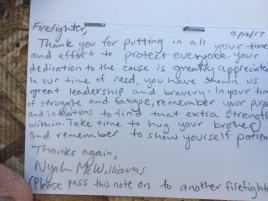 Firefighter,
10/12/17
Thank you for putting in all your time
and effort to protect everyone. Your
dedication to the cause is greatly appreciated
In our time of need, you have shown us
great leadership and bravery. In your time
of struggle and fatigue, remember your purpose
and intentions to find that extra strength
within. Take time to hug your brother
and remember to show yourself patience
Thanks again,
Nyah McWilliams
(Please pass this note on to another firefighter